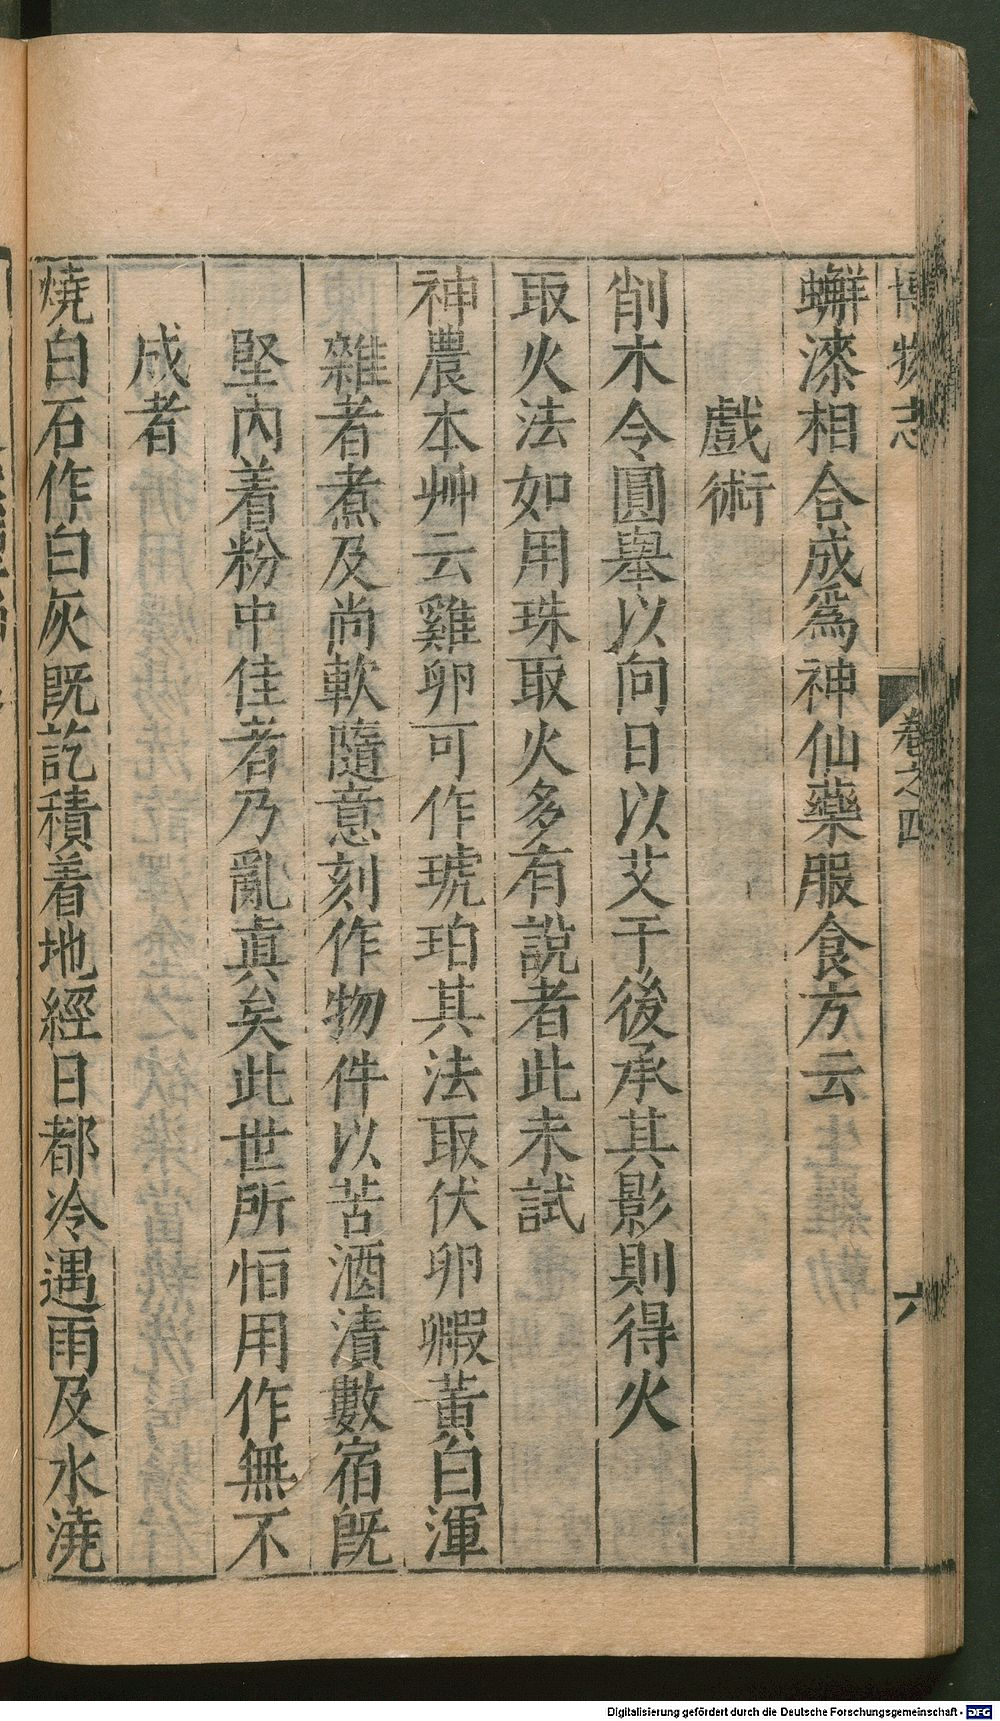 博物志 卷之四 六
蠏漆相合成爲神仙藥服食方云
戲術
削木令圓舉以向日以艾于後承其影則得火
取火法如用珠取火多有說者此未試
神農本艸云雞卵可作琥珀其法取伏卵毈黃白渾
雜者煮及尚軟隨意刻作物件以苦酒漬數宿既
堅內着粉中佳者乃亂真矣此世所恒用作無不
成者
燒白石作白灰既訖積着地經日都冷遇雨及水澆
Digitalisierung gefördert durch die Deutsche Forschungsgemeinschaft - DFG